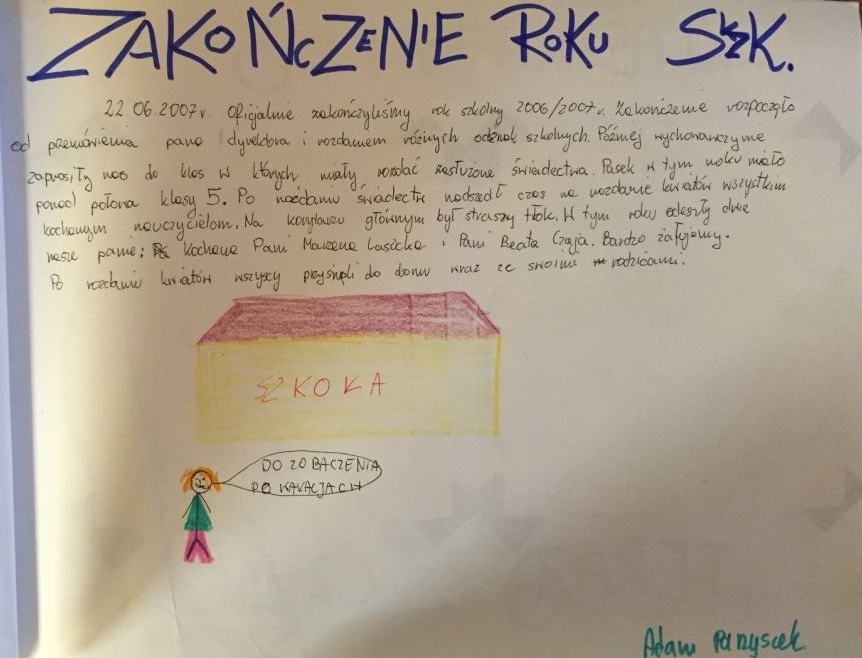 ZAKOŃCZENIE ROKU SZK.
22.06.2007r. Oficjalnie zakończyliśmy rok szkolny 2006/2007r. Zakończenie rozpoczęło
od przemówienia pana dyrektora i rozdaniem różnych odznak szkolnych. Później wychowawczynie
zaprosiły nas do klas w których miały rozdać zasłużone świadectwa. Pasek w tym roku miało
ponad połowa klasy 5. Po rozdaniu świadectw nadszedł czas na rozdanie kwiatów wszystkim
kochanym nauczycielom. Na korytarzu głównym był straszny tłok. W tym roku odeszły dwie
nasze panie: Kochana Pani Marzena Lasicka i Pani Beata Czaja. Bardzo żałujemy.
Po rozdaniu kwiatów wszyscy do domu wraz ze swoimi rodzicami.
SZKOŁA
DO ZOBACZENIA
PO WAKACJACH
Adam